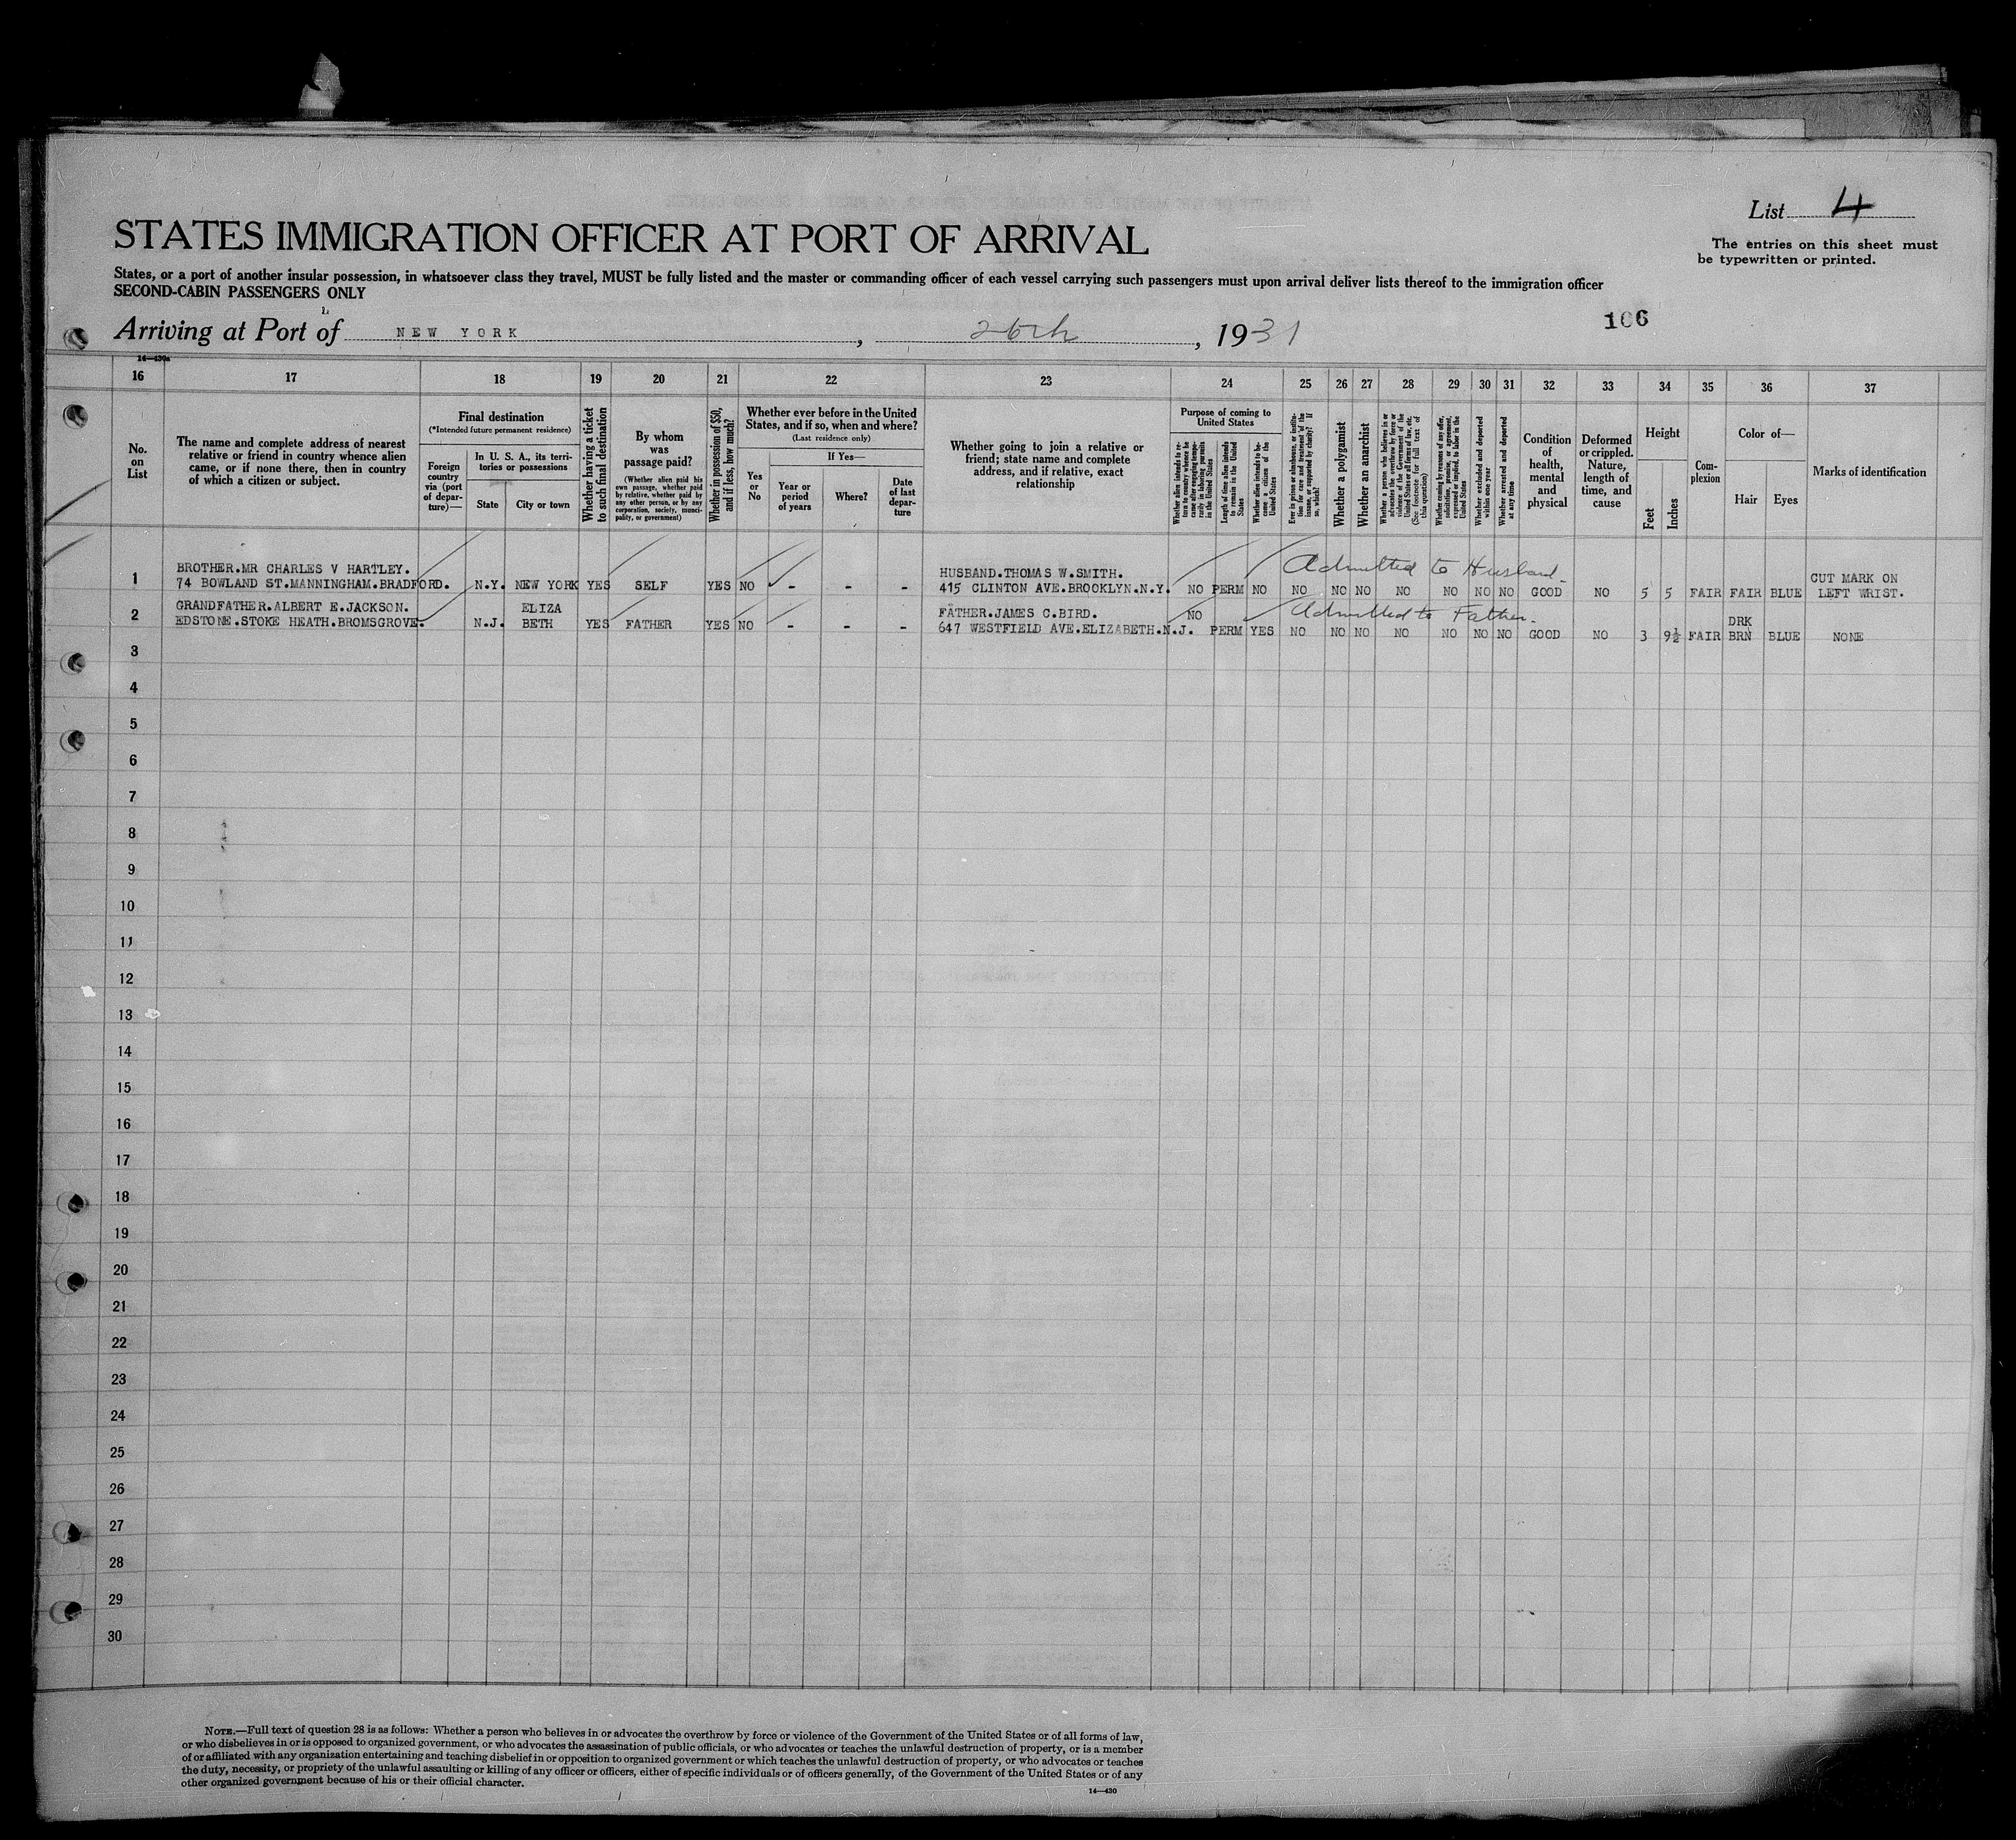 List 4
The entries on this sheet must
be typewritten or printed.
STATES IMMIGRATION OFFICER AT PORT OF ARRIVAL
States, or a port of another insular possession, in whatsoever class they travel, MUST be fully listed and the master or commanding officer of each vessel carrying such passengers must upon arrival deliver lists thereof to the immigration officer
SECOND-CABIN PASSENGERS ONLY
Arriving at Port of NEW YORK, 26th, 1931
106
14—430a
16 17 18 19 20 21 22 23 24 25 26 27 28 29 30 31 32 33 34 35 36 37
No.
on
List
The name and complete address of nearest
relative or friend in country whence alien
came, or if none there, then in country
of which a citizen or subject.
Final destination
(*Intended future permanent residence)
Foreign
country
via (port
of depar-
ture)—
In U. S. A., its terri-
tories or possessions
State
City or town
Whether having a ticket
to such final destination
By whom
was
passage paid?
(Whether alien paid his
own passage, whether paid
by relative, whether paid by
any other person, or by any
corporation, society, munici-
pality, or government)
Whether in possession of $50,
and if less, how much?
Whether ever before in the United
States, and if so, when and where?
(Last residence only)
Yes
or
No
If Yes—
Year or
period
of years
Where?
Date
of last
depar-
ture
Whether going to join a relative or
friend; state name and complete
address, and if relative, exact
relationship
Purpose of coming to
United States
Whether alien intends to re-
turn to country whence he
came after engaging tempo-
rarily in laboring pursuits
in the United States
Length of time alien intends
to remain in the United
States
Whether alien intends to be-
come a citizen of the
United States
Ever in prison or almshouse, or institu-
tion for care and treatment of the
insane, or supported by charity? If
so, which?
Whether a polygamist
Whether an anarchist
Whether a person who believes in or
advocates the overthrow by force or
violence of the Government of the
United States or all forms of law, etc.
(See footnote for full text of
this question)
Whether coming by reasons of any offer,
solicitation, promise, or agreement,
expressed or implied, to labor in the
United States
Whether excluded and deported
within one year
Whether arrested and deported
at any time
Condition
of
health,
mental
and
physical
Deformed
or crippled.
Nature,
length of
time, and
cause
Height
Feet
Inches
Com-
plexion
Color of—
Hair
Eyes
Marks of identification
BROTHER.MR CHARLES V HARTLEY. HUSBAND.THOMAS W.SMITH. Admitted to Husband. CUT MARK ON
1 74 BOWLAND ST.MANNINGHAM.BRADFORD. N.Y. NEW YORK YES SELF YES NO - - - 415 CLINTON AVE.BROOKLYN.N.Y. NO PERM NO NO NO NO NO NO NO NO GOOD NO 5 5 FAIR FAIR BLUE LEFT WRIST.
GRANDFATHER.ALBERT E.JACKSON. ELIZA FATHER.JAMES C.BIRD. NO Admitted to Father. DRK
2 EDSTONE.STOKE HEATH.BROMSGROVE. N.J. BETH YES FATHER YES NO - - - 647 WESTFIELD AVE.ELIZABETH.N.J. PERM YES NO NO NO NO NO NO NO GOOD NO 3 9½ FAIR BRN BLUE NONE
3
4
5
6
7
8
9
10
11
12
13
14
15
16
17
18
19
20
21
22
23
24
25
26
27
28
29
30
NOTE.—Full text of question 28 is as follows: Whether a person who believes in or advocates the overthrow by force or violence of the Government of the United States or of all forms of law,
or who disbelieves in or is opposed to organized government, or who advocates the assassination of public officials, or who advocates or teaches the unlawful destruction of property, or is a member
of or affiliated with any organization entertaining and teaching disbelief in or opposition to organized government or which teaches the unlawful destruction of property, or who advocates or teaches
the duty, necessity, or propriety of the unlawful assaulting or killing of any officer or officers, either of specific individuals or of officers generally, of the Government of the United States or of any
other organized government because of his or their official character.
14—430